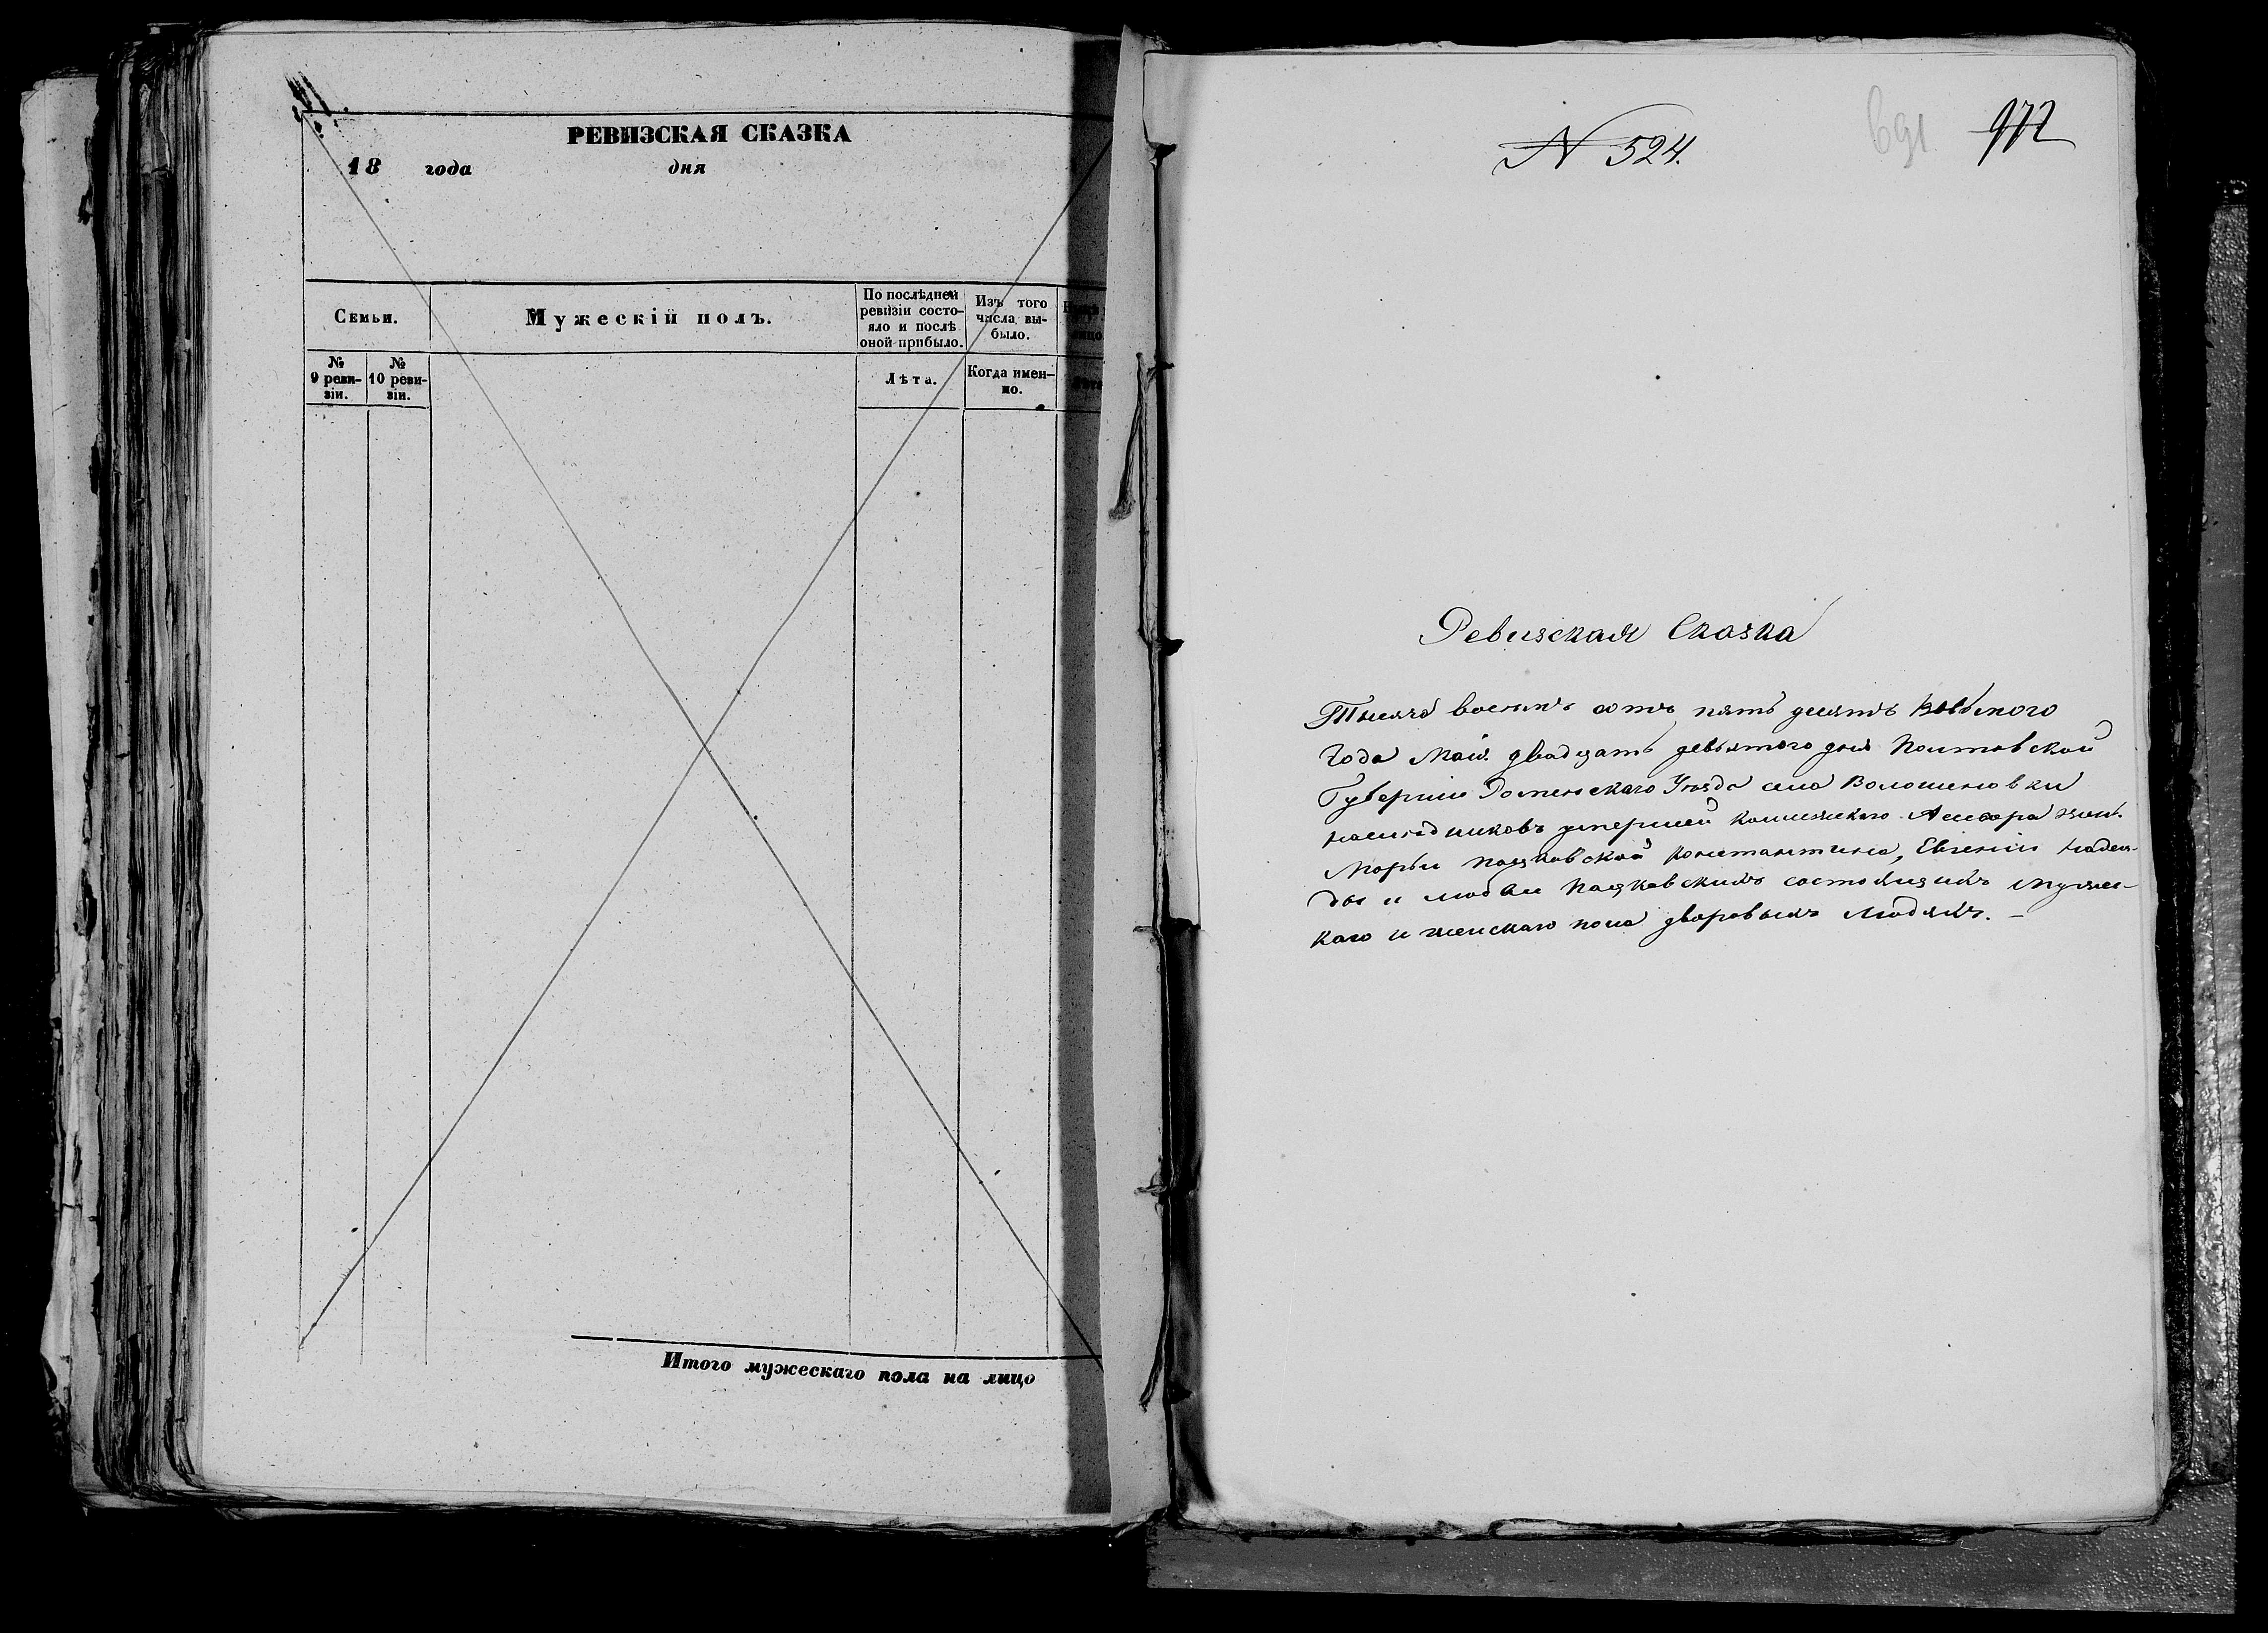 РЕВИЗСКАЯ СКАЗКА
18 года дня
Семьи.
Мужескій полъ.
По послѣдней ревизіи состо-
яло и послѣ оной прибыло.
Изъ того числа вы-
было.
№ 9 реви-
зіи.
№ 10 реви-
зіи.
Лѣта.
Когда имен-
но.
Итого мужескаго пола на лицо
N 524.
691 972
Ревизская Сказка
Тысяча восемь сотъ пять десятъ восьмого
Года Маія двадцать девятого дня Полтавской
Губерніи Роменскаго Уѣзда села Волошиновки
наслѣдниковъ умершей Коллежскаго Ассесора жены
Марьи Константина, Евгеніи Надеж-
ды и Любви состоящихъ мужес-
каго и женскаго пола дворовыхъ людяхъ. –